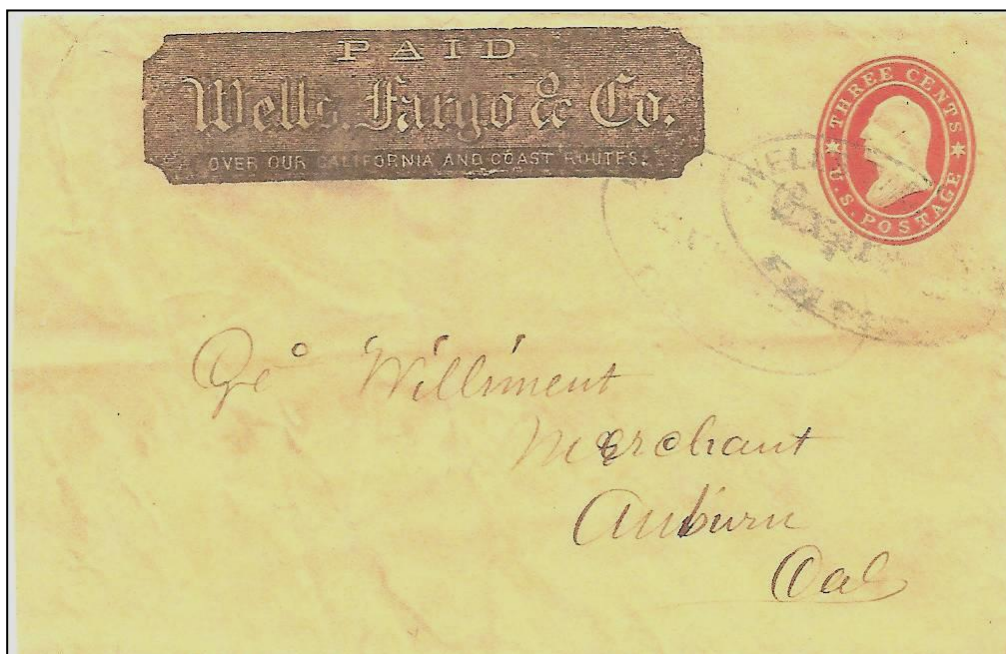 PAID
Wells, Fargo & Co.
OVER OUR CALIFORNIA AND COAST ROUTES.
THREE CENTS
U.S. POSTAGE
WELL
Expre
FOLSO
Geo Williment
Merchant
Auburn
Cal